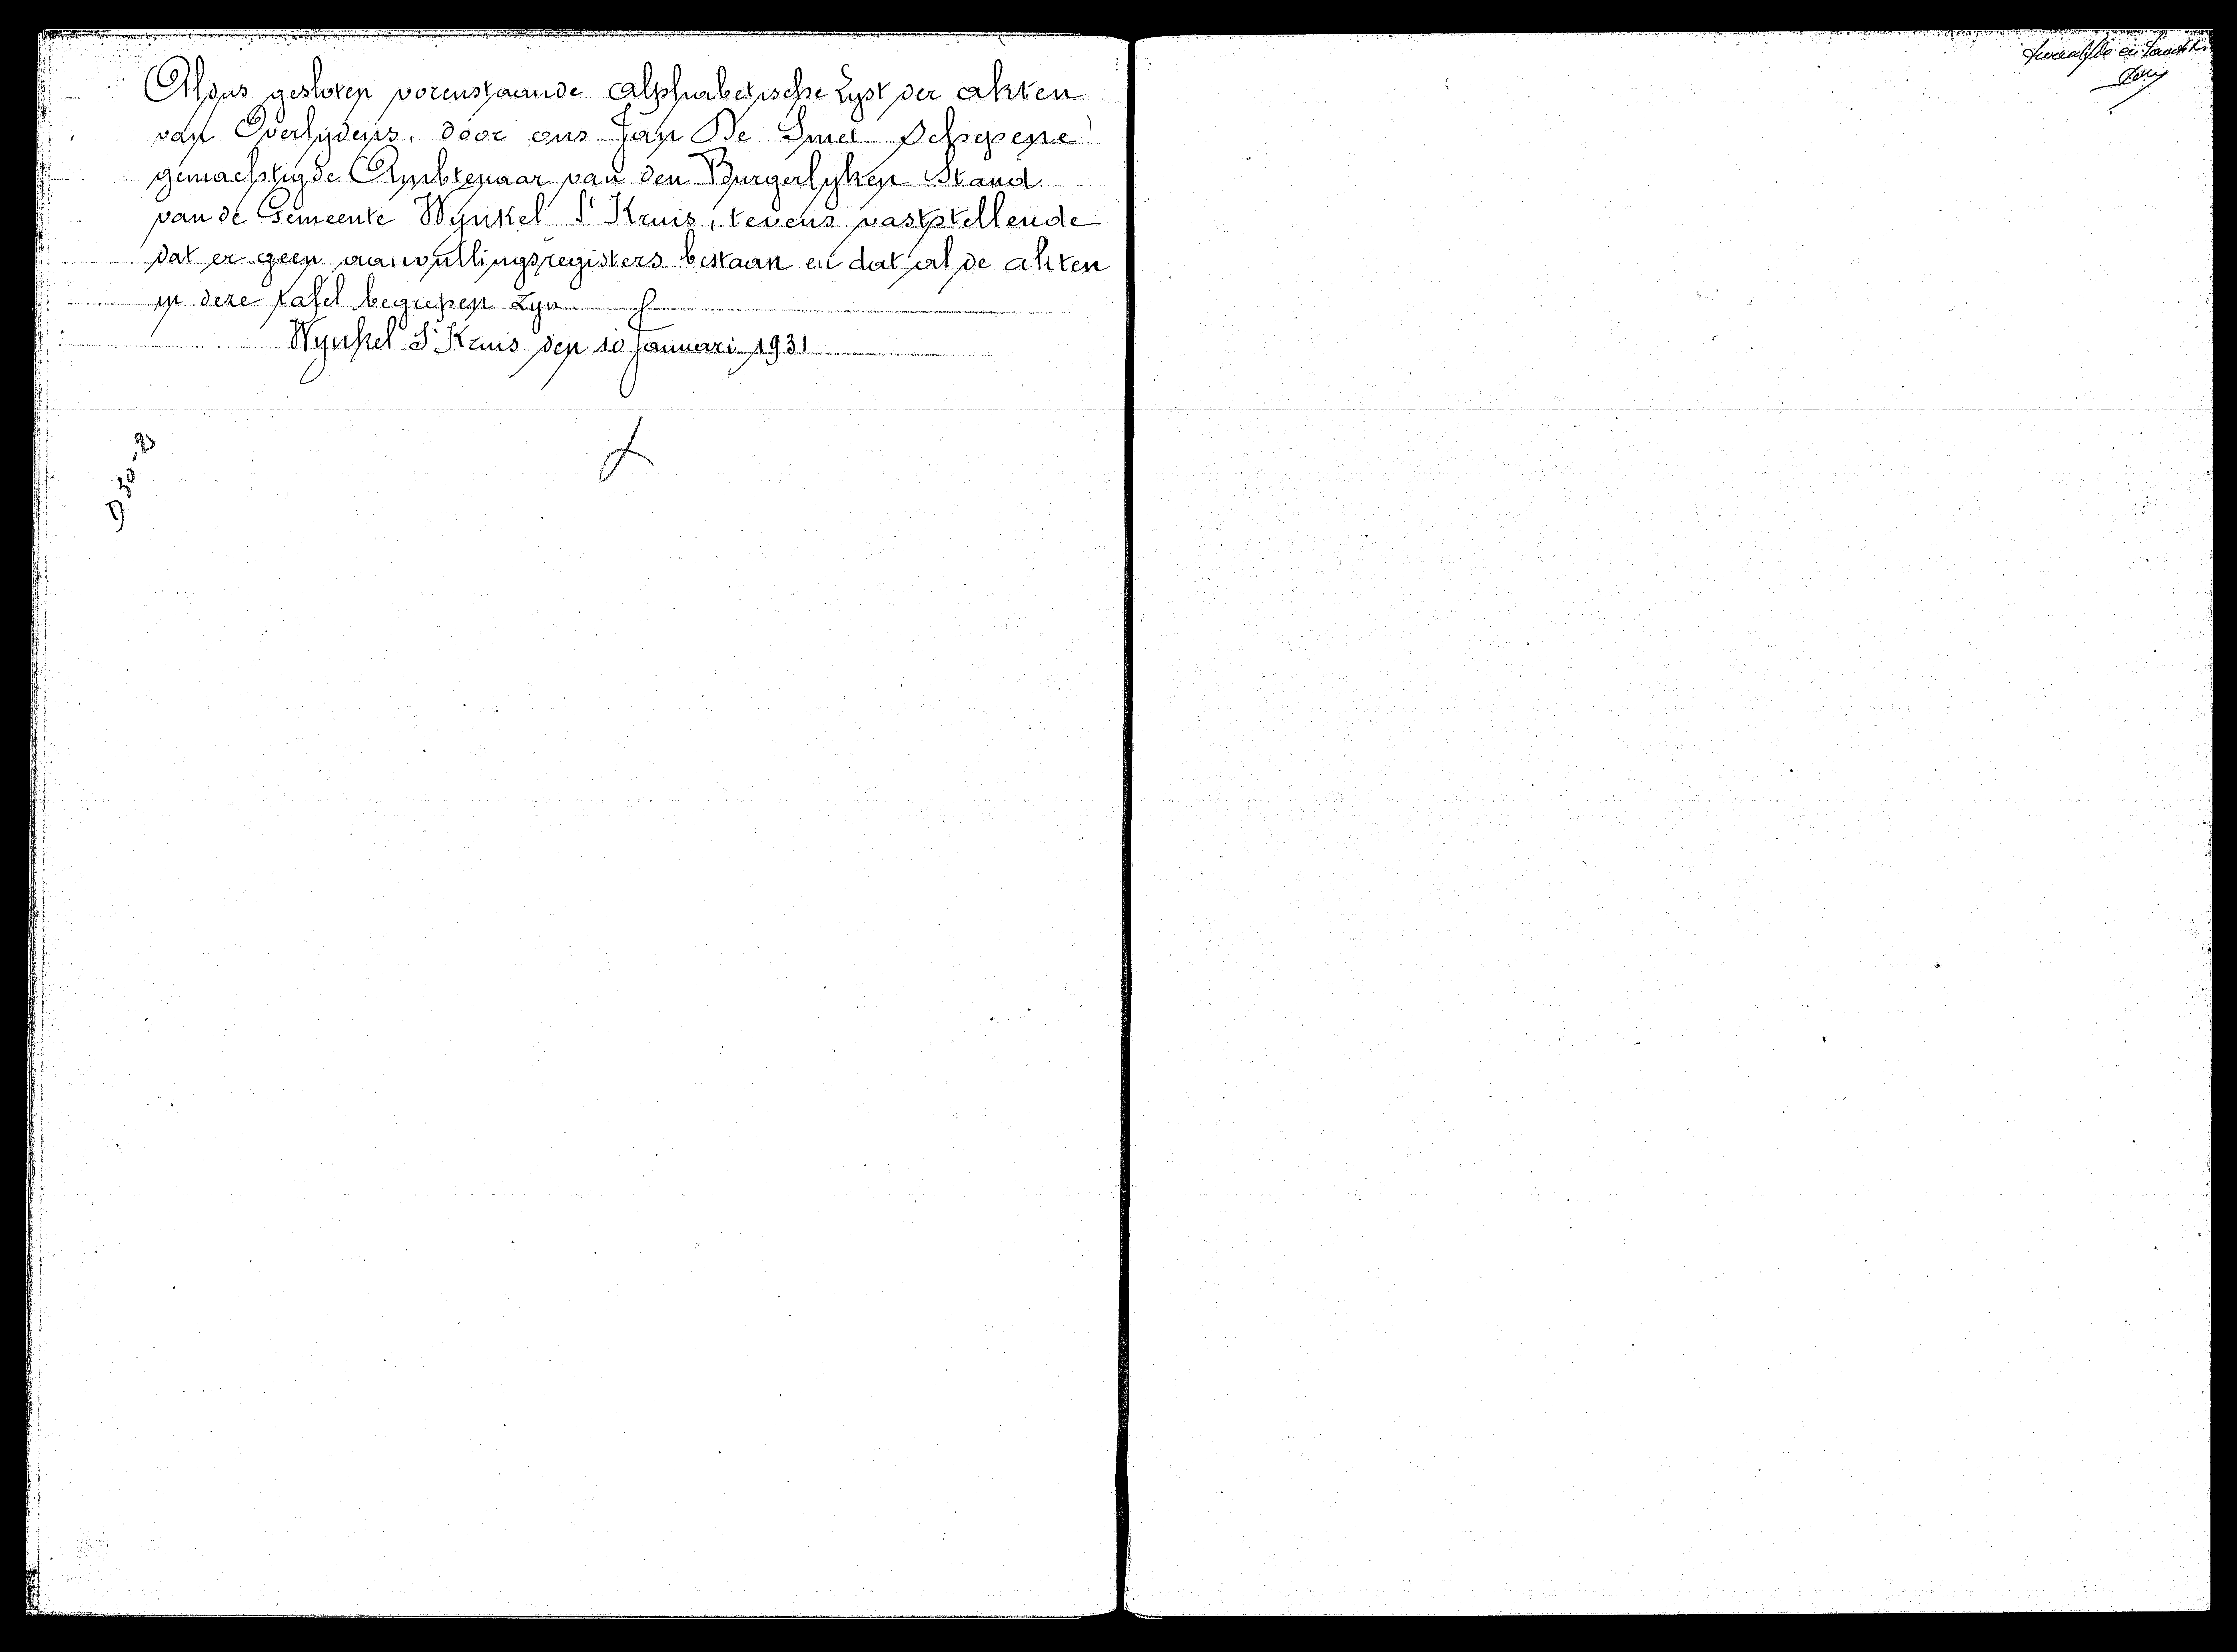 Aldus gesloten vorenstaande alphabetische Lyst der akten
van Overlydens, door ons Jan De Smet Schepene
gemachtigde Ambtenaar van den Burgerlyken Stand
van de Gemeente Wynkel St Kruis, tevens vaststellende
dat er geen aanvullingsregisters bestaan en dat al de akten
in deze tafel begrepen zyn
Wynkel St Kruis den 10 Januari 1931